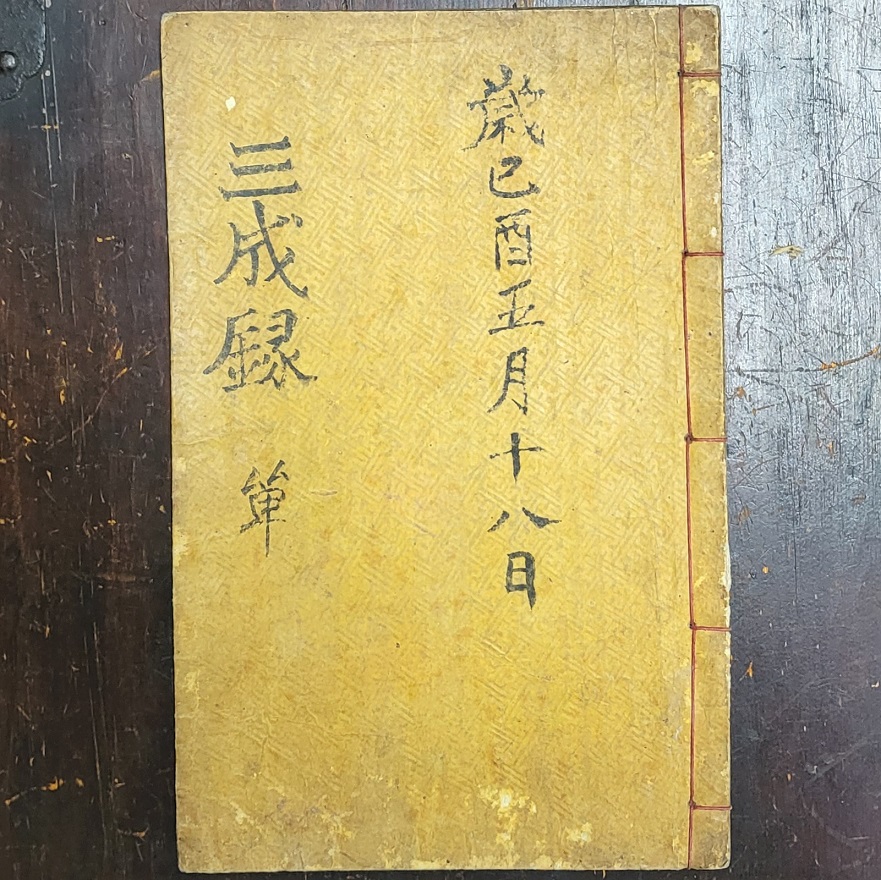 歲己酉五月十八日
三成錄 單